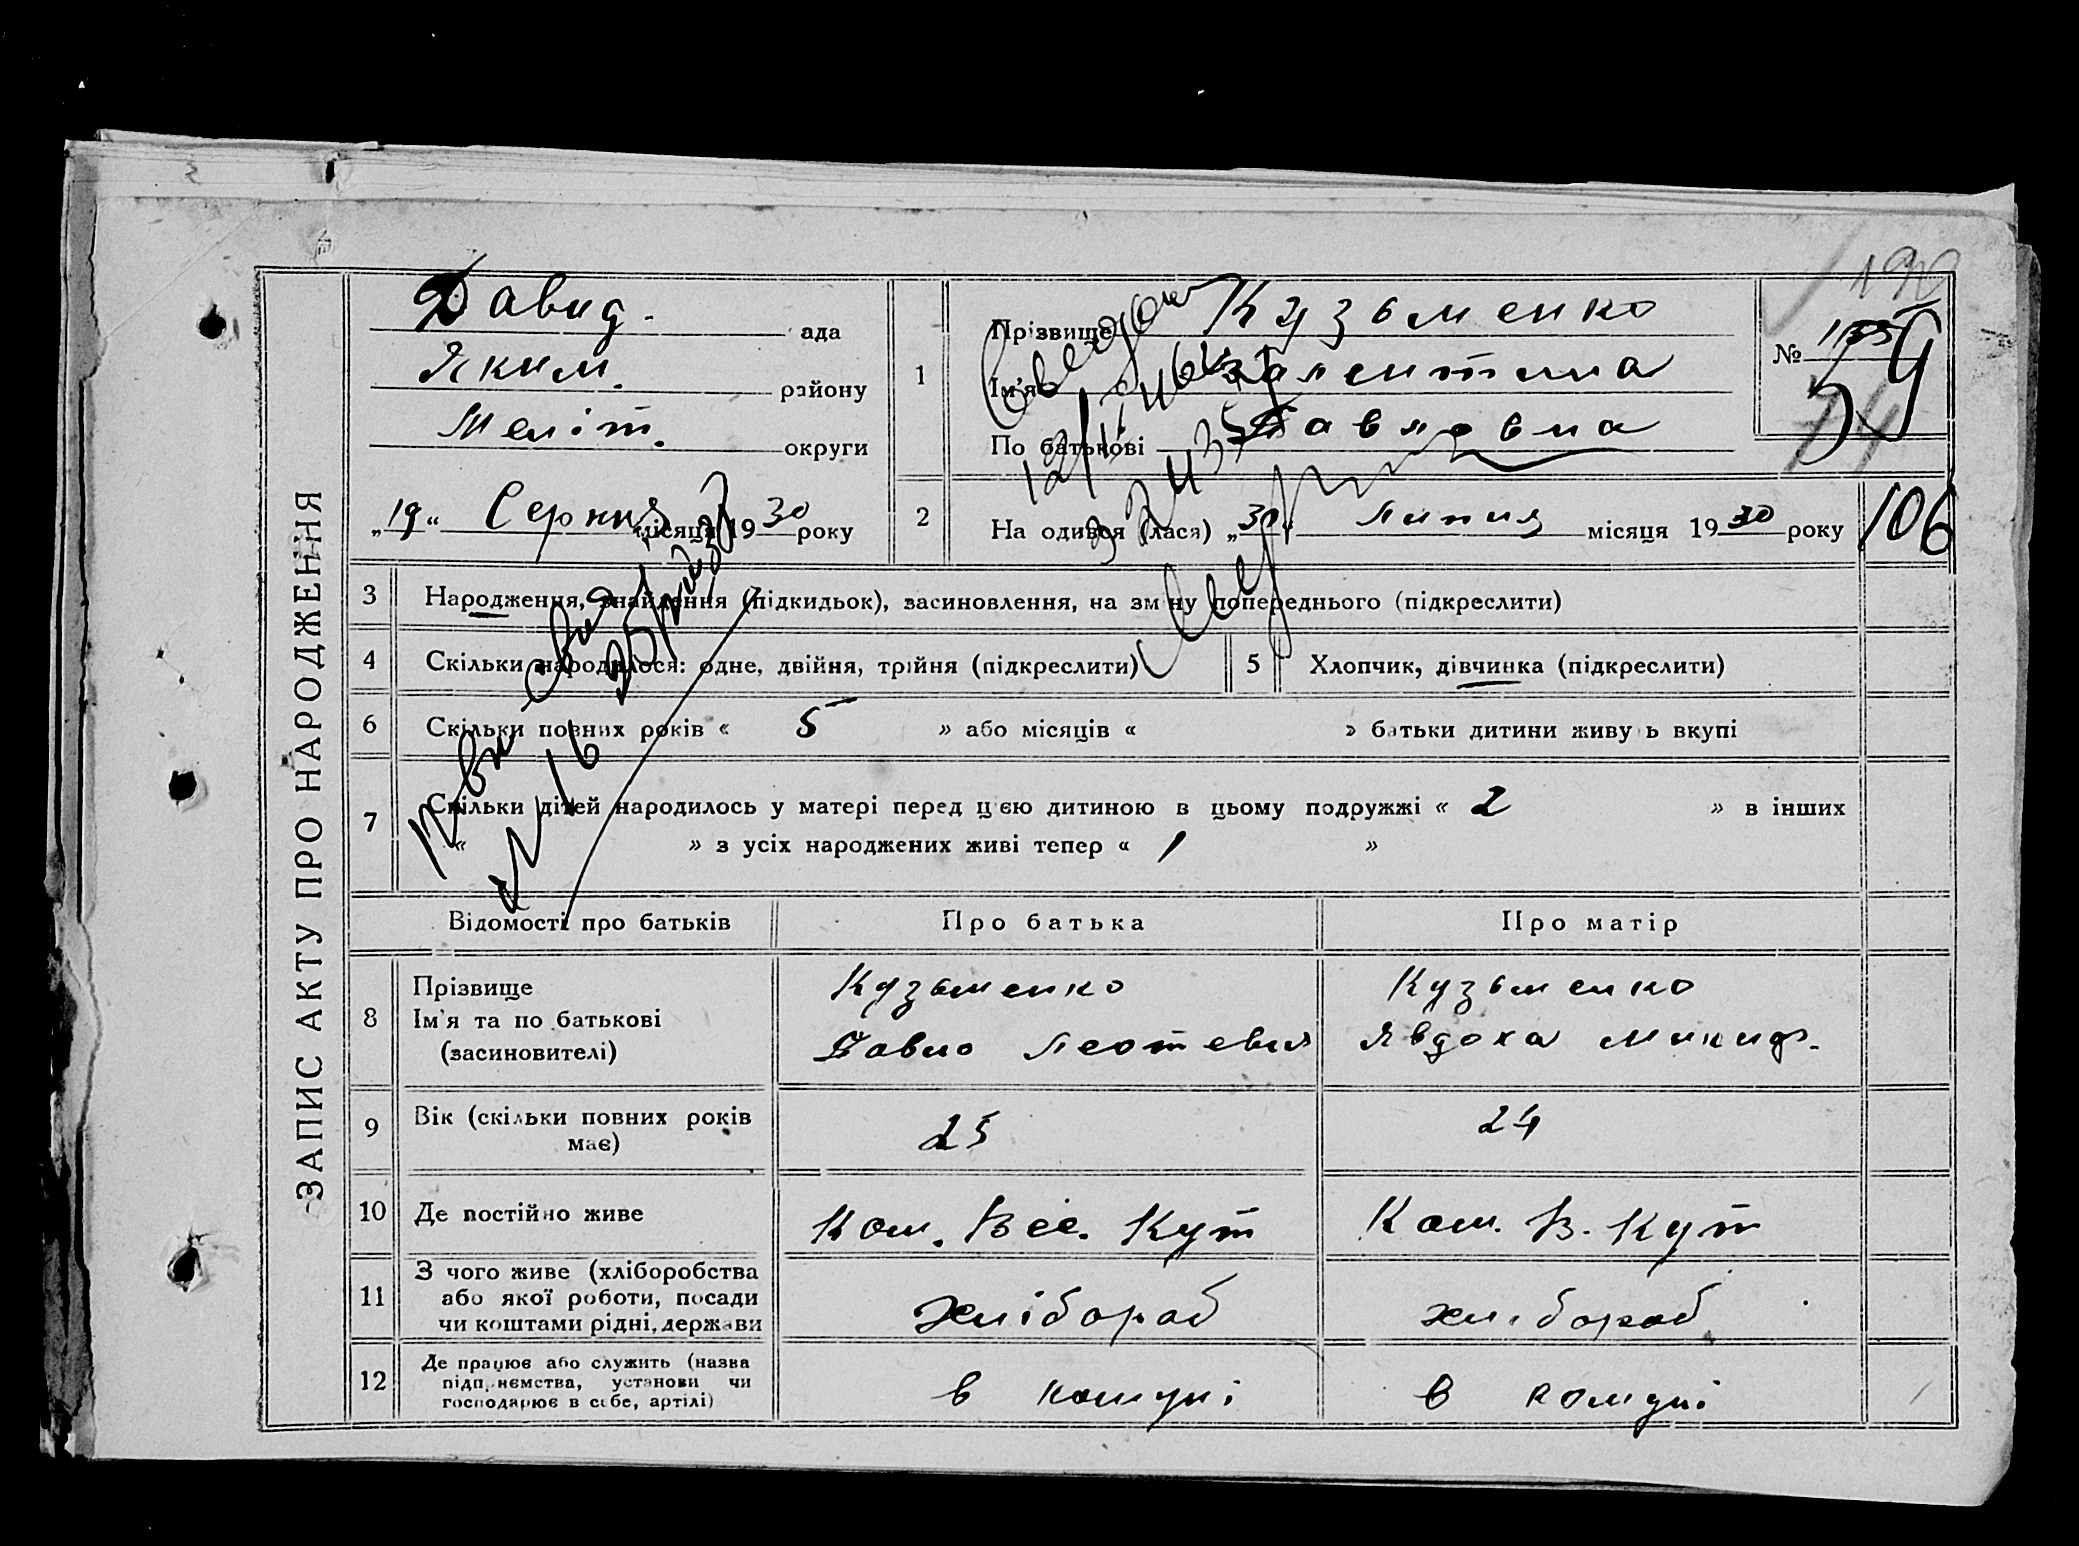 ЗАПИС АКТУ ПРО НАРОДЖЕННЯ
Давид. ада
Яким. району
Меліт. округи
„19“ Серпня місяця 1930 року
1 Прізвище Кузьменко
Ім'я Валентина
По батькові Павловна
№ 59
2 На одився (лася) „30“ Липня місяця 1930 року
106
3 Народження, знайдення (підкидьок), засиновлення, на зм ну попереднього (підкреслити)
4 Скільки народилося: одне, двійня, трійня (підкреслити)
5 Хлопчик, дівчинка (підкреслити)
6 Скільки повних років « 5 » або місяців « » батьки дитини живу ь вкупі
7 Скільки дітей народилось у матері перед цією дитиною в цьому подружжі « 2 » в інших
« » з усіх народжених живі тепер « 1 »
Відомості про батьків Про батька Про матір
8 Прізвище Кузьменко Кузьменко
Ім'я та по батькові Явдоха Микиф.
(засиновителі)
9 Вік (скільки повних років має) 25 24
10 Де постійно живе Ком. Вес. Кут Ком. В. Кут
11 З чого живе (хліборобства
або якої роботи, посади хлібороб хлібороб
чи коштами рідні, держави
12 Де працює або служить (назва
підприємства, установи чи в комуні в комуні
господарює в себе, артілі)